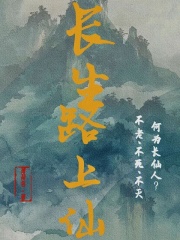 长生路上仙
何为长仙人？
不老、不死、不灭